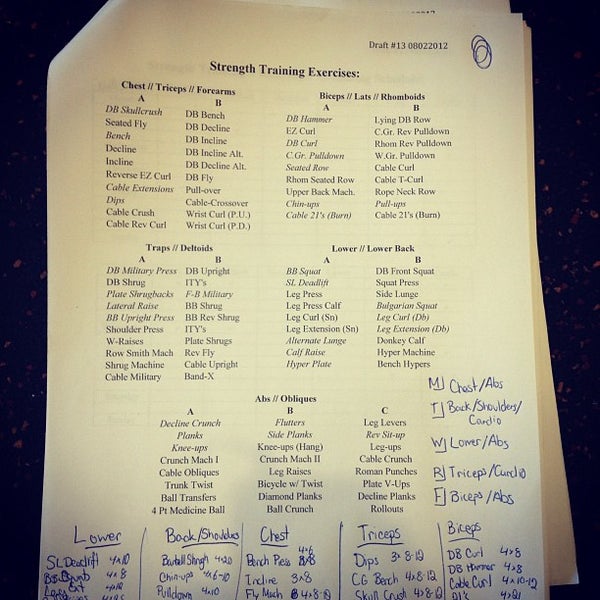 Draft #13 08022012
Strength Training Exercises:
Chest // Triceps // Forearms
A B
DB Skullcrush DB Bench
Seated Fly DB Decline
Bench DB Incline
Decline DB Incline Alt.
Incline DB Decline Alt.
Reverse EZ Curl DB Fly
Cable Extensions Pull-over
Dips Cable-Crossover
Cable Crush Wrist Curl (P.U.)
Cable Rev Curl Wrist Curl (P.D.)
Biceps // Lats // Rhomboids
A B
DB Hammer Lying DB Row
EZ Curl C.Gr. Rev Pulldown
DB Curl Rhom Rev Pulldown
C.Gr. Pulldown W.Gr. Pulldown
Seated Row Cable Curl
Rhom Seated Row Cable T-Curl
Upper Back Mach. Rope Neck Row
Chin-ups Pull-ups
Cable 21's (Burn) Cable 21's (Burn)
Traps // Deltoids
A B
DB Military Press DB Upright
DB Shrug ITY's
Plate Shrugbacks F-B Military
Lateral Raise BB Shrug
BB Upright Press BB Rev Shrug
Shoulder Press ITY's
W-Raises Plate Shrugs
Row Smith Mach Rev Fly
Shrug Machine Cable Upright
Cable Military Band-X
Lower // Lower Back
A B
BB Squat DB Front Squat
SL Deadlift Squat Press
Leg Press Side Lunge
Leg Press Calf Bulgarian Squat
Leg Curl (Sn) Leg Curl (Db)
Leg Extension (Sn) Leg Extension (Db)
Alternate Lunge Donkey Calf
Calf Raise Hyper Machine
Hyper Plate Bench Hypers
Abs // Obliques
A B C
Decline Crunch Flutters Leg Levers
Planks Side Planks Rev Sit-up
Knee-ups Knee-ups (Hang) Leg-ups
Crunch Mach I Crunch Mach II Cable Crunch
Cable Obliques Leg Raises Roman Punches
Trunk Twist Bicycle w/ Twist Plate V-Ups
Ball Transfers Diamond Planks Decline Planks
4 Pt Medicine Ball Ball Crunch Rollouts
M] Chest/Abs
T] Back/Shoulders/
Cardio
W] Lower/Abs
R] Triceps/Cardio
F] Biceps/Abs
Lower
SL Deadlift 4x10
4x8
4x10
Back/Shoulders
Barbell Shrugh 4x20
Chin-ups 4x6-10
Pulldown 4x10
Chest
4x6
Bench Press 8x8
Incline 3x8
Fly Mach 4x8-12
Triceps
Dips 3x 8-12
CG Bench 4x8-12
Skull Crush 4x8-12
Biceps
DB Curl 4x8
DB Hammer 4x8
Cable Curl 4x10-12
21's 4x21